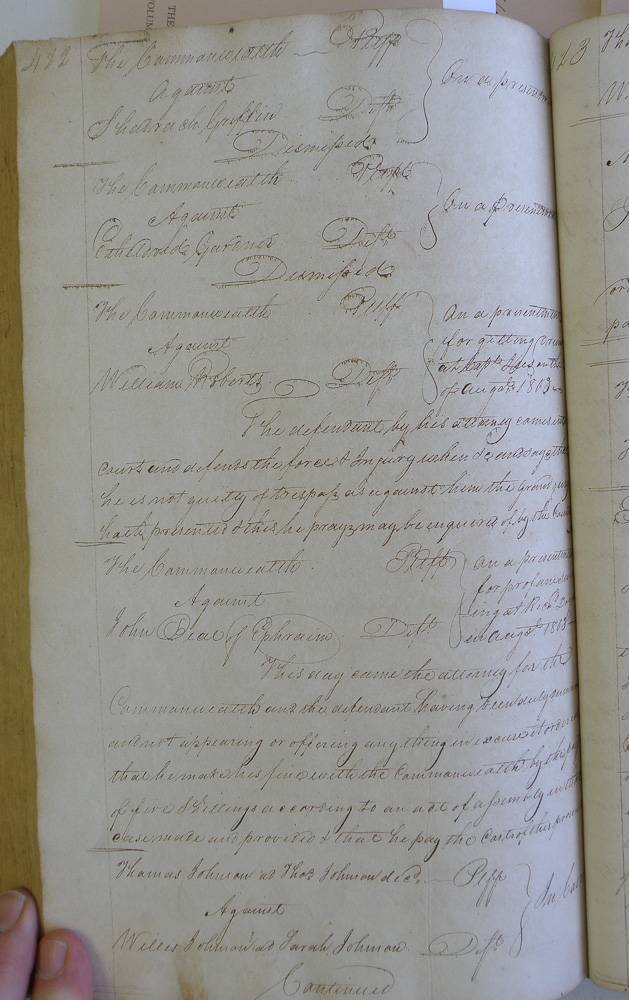 THE
VOLUME
422
The Commonwealth Pltff
Against
Shadrach Griffin Deft
On a presentm
Dismissed
The Commonwealth Pltff
Against
Ethelored Gardner Deft
On a presentm
Dismissed
The Commonwealth Pltff
Against
William Roberts Deft
On a presentment
for getting
at Capt on the
of Augst 1813
The defendant by his attorney comes into
court and defends the force & Injury when &c and says that
he is not guilty of trespass as against him the Grand jury
hath presented & this he prays may be enquired of by the Coun
The Commonwealth Pltff
Against
John Beal of Ephraim Deft
On a presentm
for profane
ing at Richd
in Augst 1813
This day came the attorney for the
Commonwealth and the defendant having been duly
and not appearing or offering any thing in excuse it
that he make his fine with the Commonwealth by the
of five Shillings according to an act of assembly in that
case made and provided & that he pay the Costs of this
Thomas Johnson ad Thos Johnson decd Pltff
Against
Willis Johnson ad Sarah Johnson Deft
In
Continued
423